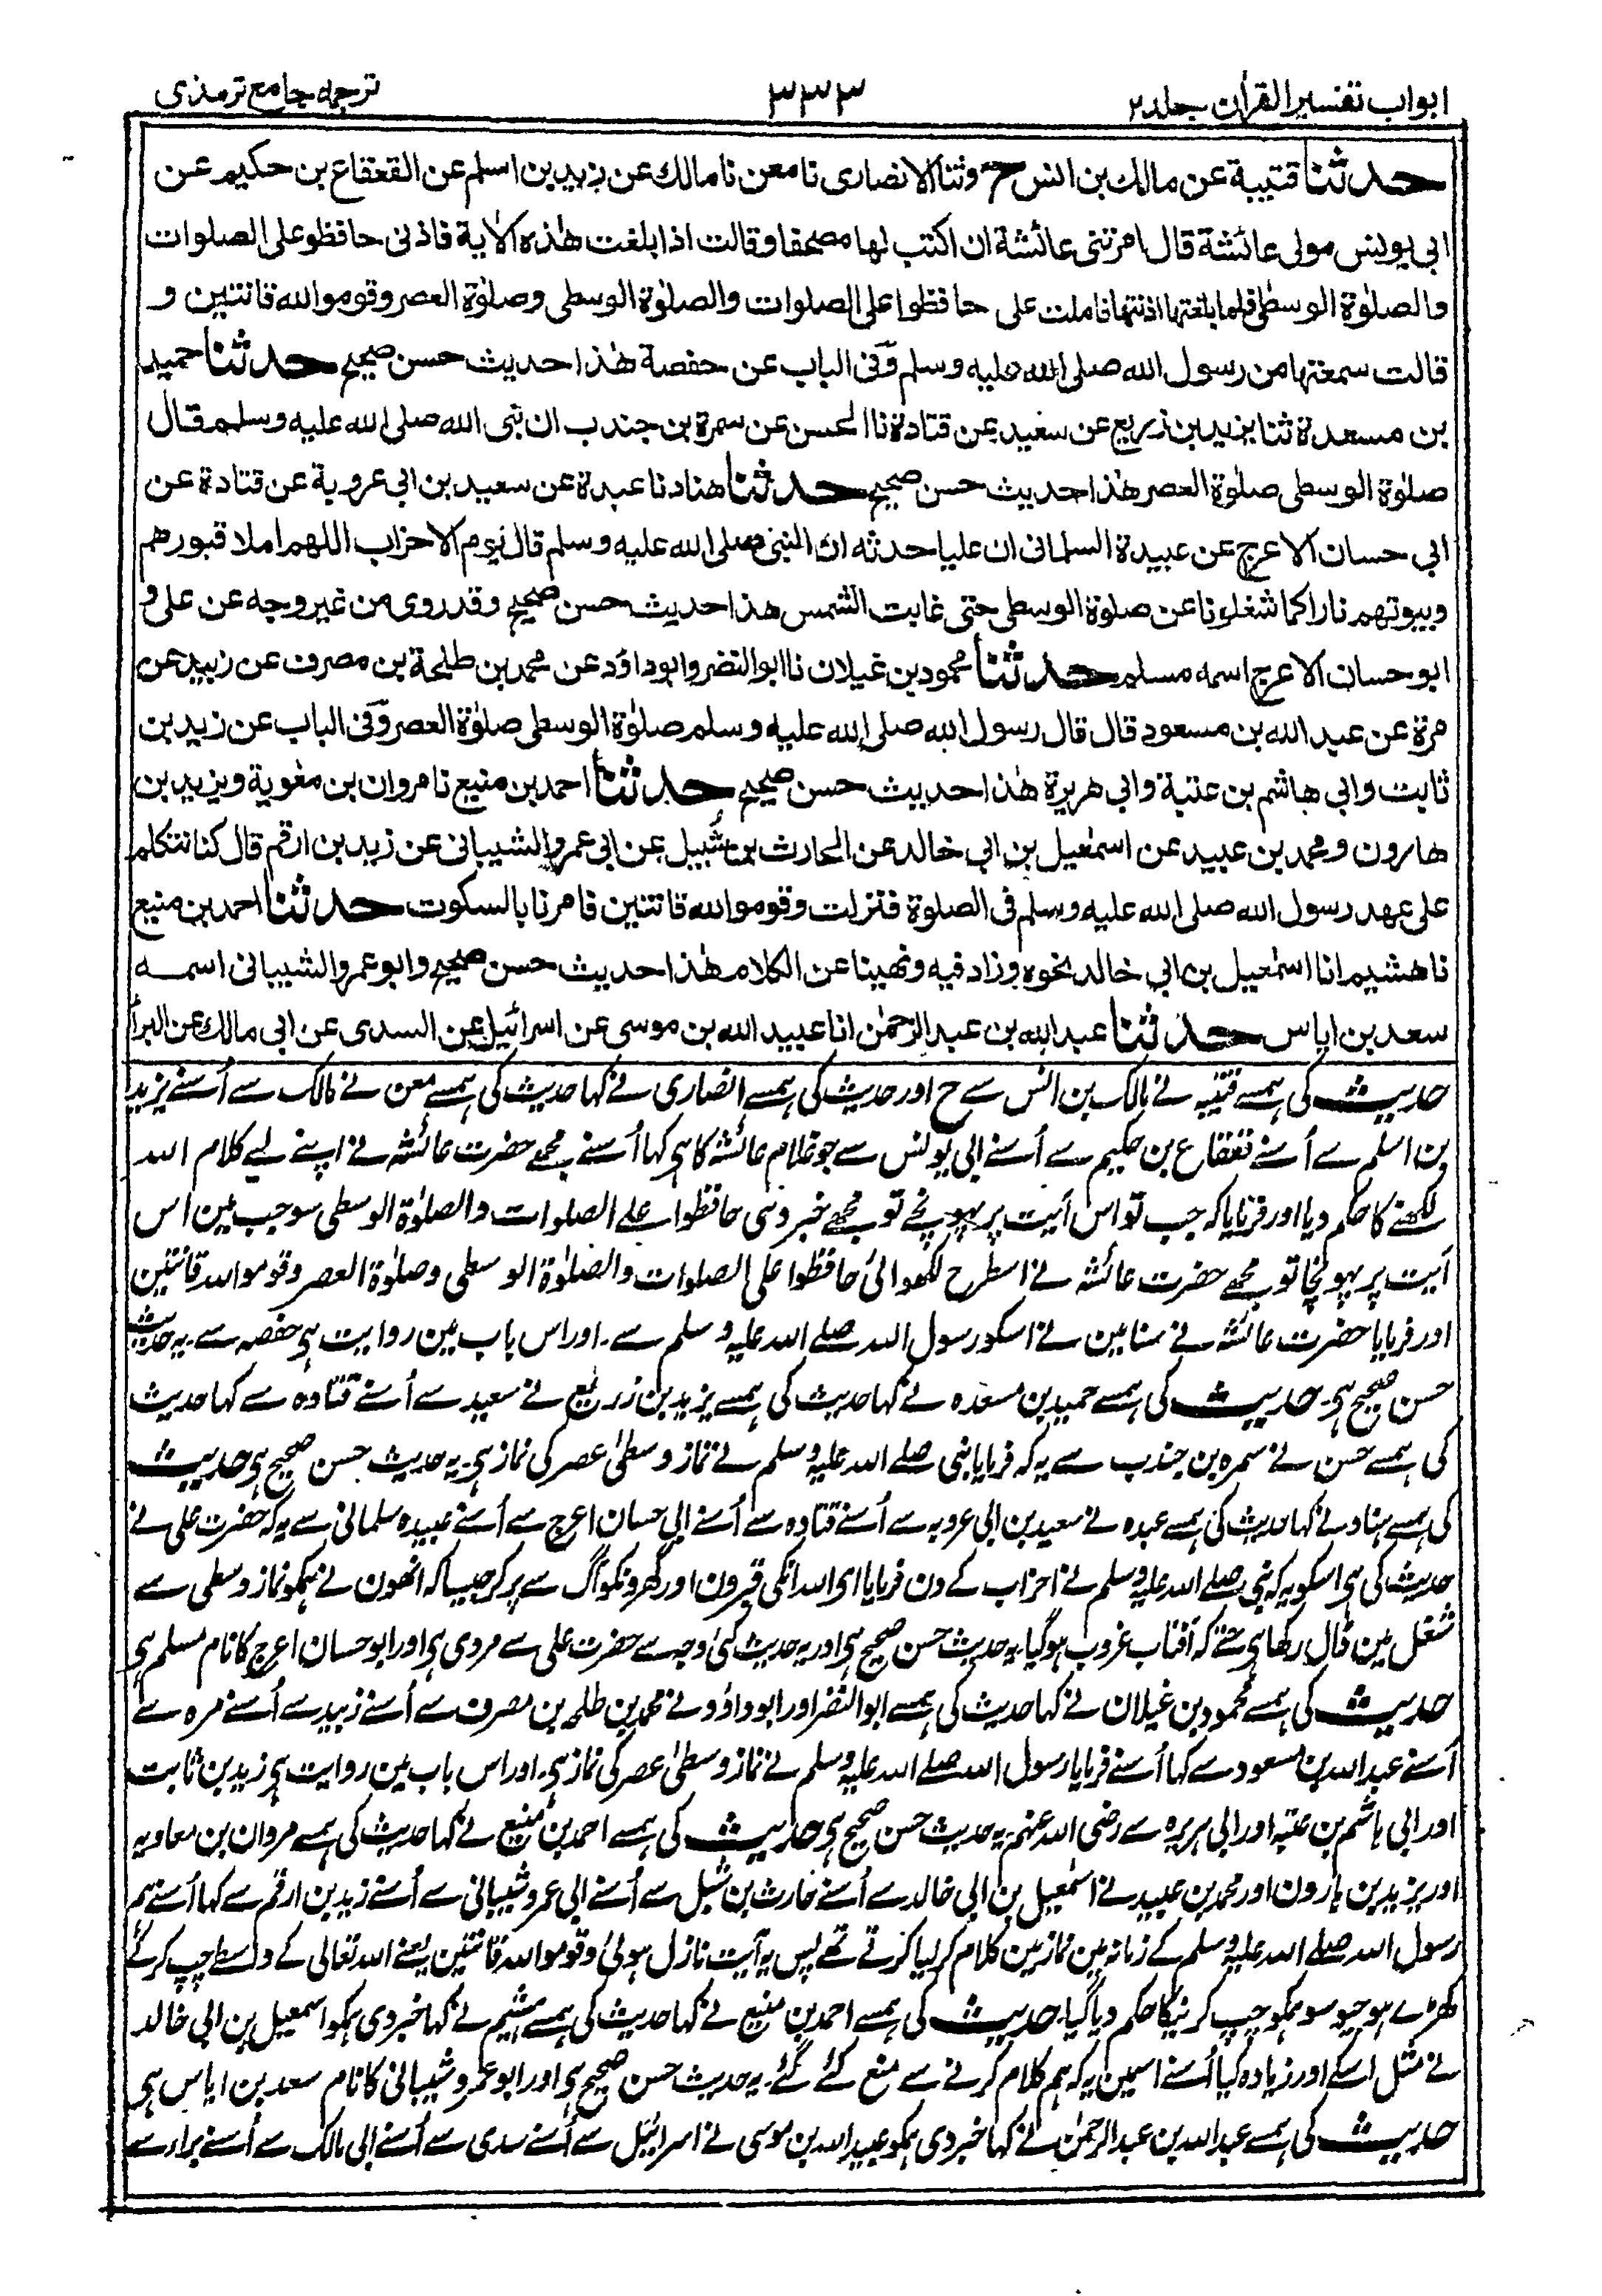 ابواب تفسیر القرآن جلد۲
۳۳۳
ترجمہ جامع ترمذی
حدثنا قتیبة عن مالك بن انس ح وثنا الانصاری نا معن نا مالك عن زید بن اسلم عن القعقاع بن حکیم عن
ابی یونس مولی عائشة قال امرتنی عائشة ان اکتب لها مصحفا وقالت اذا بلغت هٰذه الاٰیة فاذنی حافظو علی الصلوات
والصلوٰة الوسطٰی فلما بلغتها اذنتها فاملت علی حافظوا علی الصلوات والصلوٰة الوسطی وصلوٰة العصر وقوموا لله قانتین و
قالت سمعتها من رسول الله صلی الله علیه وسلم وفی الباب عن حفصة هٰذا حدیث حسن صحیح حدثنا حمید
بن مسعدة ثنا یزید بن زریع عن سعید عن قتادة نا الحسن عن سمرة بن جندب ان نبی الله صلی الله علیه وسلم قال
صلوٰة الوسطی صلوٰة العصر هٰذا حدیث حسن صحیح حدثنا هناد نا عبدة عن سعید بن ابی عروبة عن قتادة عن
ابی حسان الاعرج عن عبیدة السلمانی ان علیا حدثه ان النبی صلی الله علیه وسلم قال یوم الاحزاب اللهم املا قبورهم
وبیوتهم نارا کما شغلونا عن صلوة الوسطی حتی غابت الشمس هذا حدیث حسن صحیح وقد روی من غیر وجه عن علی و
ابو حسان الاعرج اسمه مسلم حدثنا محمود بن غیلان نا ابو النضر وابو داؤد عن محمد بن طلحة بن مصرف عن زبید عن
مرة عن عبد الله بن مسعود قال قال رسول الله صلی الله علیه وسلم صلوٰة الوسطی صلوٰة العصر وفی الباب عن زید بن
ثابت وابی هاشم بن عتبة وابی هریرة هٰذا حدیث حسن صحیح حدثنا احمد بن منیع نا مروان بن معٰویة ویزید بن
هارون ومحمد بن عبید عن اسمٰعیل بن ابی خالد عن الحارث بن شُبیل عن ابی عمرو الشیبانی عن زید بن ارقم قال کنا نتکلم
علی عهد رسول الله صلی الله علیه وسلم فی الصلوة فنزلت وقوموا لله قانتین فامرنا بالسکوت حدثنا احمد بن منیع
نا هشیم انا اسمٰعیل بن ابی خالد نحوه وزاد فیه ونهینا عن الکلام هٰذا حدیث حسن صحیح وابو عمرو الشیبانی اسمه
سعد بن ایاس حدثنا عبد الله بن عبد الرحمٰن انا عبید الله بن موسی عن اسرائیل عن السدی عن ابی مالك عن البراء
حدیث کی ہمسے قتیبہ نے مالک بن انس سے ح اور حدیث کی ہمسے انصاری نے کہا حدیث کی ہمسے معن نے مالک سے اُسنے یزید
بن اسلم سے اُسنے قعقاع بن حکیم سے اُسنے ابی یونس سے جو غلام عائشہ کا ہی کہا اُسنے مجھے حضرت عائشہ نے اپنے لیے کلام اللہ
لکھنے کا حکم دیا اور فرمایا کہ جب تو اس آیت پر پہونچے تو مجھے خبر دسی حافظوا علے الصلوات والصلوٰة الوسطی سو جب مین اس
آیت پر پہونچا تو مجھے حضرت عائشہ نے اسطرح لکھوائی حافظوا علی الصلوات والصلوٰة الوسطی وصلوٰة العصر وقوموا للہ قانتین
اور فرمایا حضرت عائشہ نے سنا مین نے اسکو رسول اللہ صلے اللہ علیہ وسلم سے۔ اور اس باب مین روایت ہی حفصہ سے۔ یہ حدیث
حسن صحیح ہی۔ حدیث کی ہمسے حمید بن مسعدہ نے کہا حدیث کی ہمسے یزید بن زریع نے سعید سے اُسنے قتادہ سے کہا حدیث
کی ہمسے حسن نے سمرہ بن جندب سے یہ کہ فرمایا نبی صلے اللہ علیہ وسلم نے نماز وسطیٰ عصر کی نماز ہی۔ یہ حدیث حسن صحیح ہی حدیث
کی ہمسے ہناد نے کہا حدیث کی ہمسے عبدہ نے سعید بن ابی عروبہ سے اُسنے قتادہ سے اُسنے ابی حسان اعرج سے اُسنے عبیدہ سلمانی سے یہ کہ حضرت علی نے
حدیث کی ہی اسکو یہ کہ نبی صلے اللہ علیہ وسلم نے احزاب کے دن فرمایا ای اللہ انکی قبرون اور گھرونکو آگ سے پر کر جیسا کہ انھون نے ہمکو نماز وسطی سے
شغل مین ڈال رکھا ہی حتے کہ آفتاب غروب ہوگیا۔ یہ حدیث حسن صحیح ہی اور یہ حدیث کئی وجہ سے حضرت علی سے مروی ہی اور ابو حسان اعرج کا نام مسلم ہی
حدیث کی ہمسے محمود بن غیلان نے کہا حدیث کی ہمسے ابو النضر اور ابو داؤد نے محمد بن طلحہ بن مصرف سے اُسنے زبید سے اُسنے مرہ سے
اُسنے عبد اللہ بن مسعود سے کہا اُسنے فرمایا رسول اللہ صلے اللہ علیہ وسلم نے نماز وسطیٰ عصر کی نماز ہی۔ اور اس باب مین روایت ہی زید بن ثابت
اور ابی ہاشم بن عتبہ اور ابی ہریرہ سے رضی اللہ عنہم۔ یہ حدیث حسن صحیح ہی حدیث کی ہمسے احمد بن منیع نے کہا حدیث کی ہمسے مروان بن معاویہ
اور یزید بن ہارون اور محمد بن عبید نے اسمٰعیل بن ابی خالد سے اُسنے حارث بن شبل سے اُسنے ابی عمرو شیبانی سے اُسنے زید بن ارقم سے کہا اُسنے ہم
رسول اللہ صلے اللہ علیہ وسلم کے زمانہ مین نماز مین کلام کر لیا کرتے تھے پس یہ آیت نازل ہوئی وقوموا للہ قانتین یعنے اللہ تعالی کے واسطے چپ کر کے
کھڑے ہو جیو سو ہمکو چپ کرنیکا حکم دیا گیا۔ حدیث کی ہمسے احمد بن منیع نے کہا حدیث کی ہمسے ہشیم نے کہا خبر دی ہمکو اسمعیل بن ابی خالد
نے مثل اسکے اور زیادہ کیا اُسنے اسمین یہ کہ ہم کلام کرنے سے منع کئے گئے۔ یہ حدیث حسن صحیح ہی اور ابو عمرو شیبانی کا نام سعد بن ایاس ہی
حدیث کی ہمسے عبد اللہ بن عبد الرحمٰن نے کہا خبر دی ہمکو عبید اللہ بن موسی نے اسرائیل سے اُسنے سدی سے اُسنے ابی مالک سے اُسنے براء سے